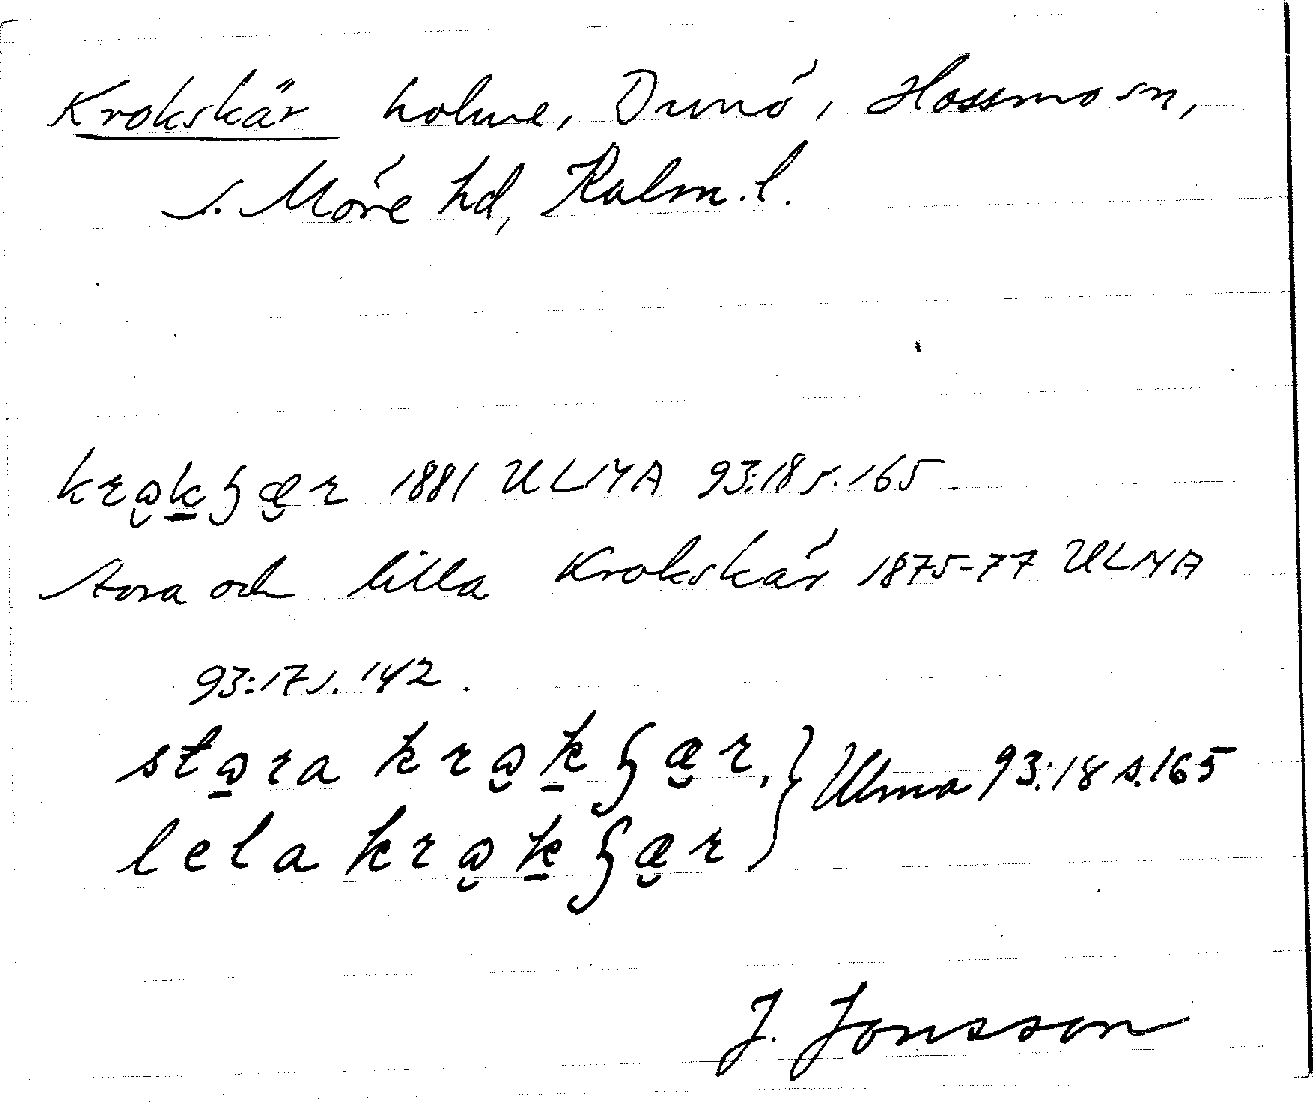 Krokskär holme, Dunö, Hossmo sn,
s. Möre hd, Kalm. l.
1881 ULMA 93:18 s. 165
Stora och lilla Krokskär 1875-77 ULMA
93:17 s. 142.
Ulma 93:18 s. 165
lela
J. Jonsson